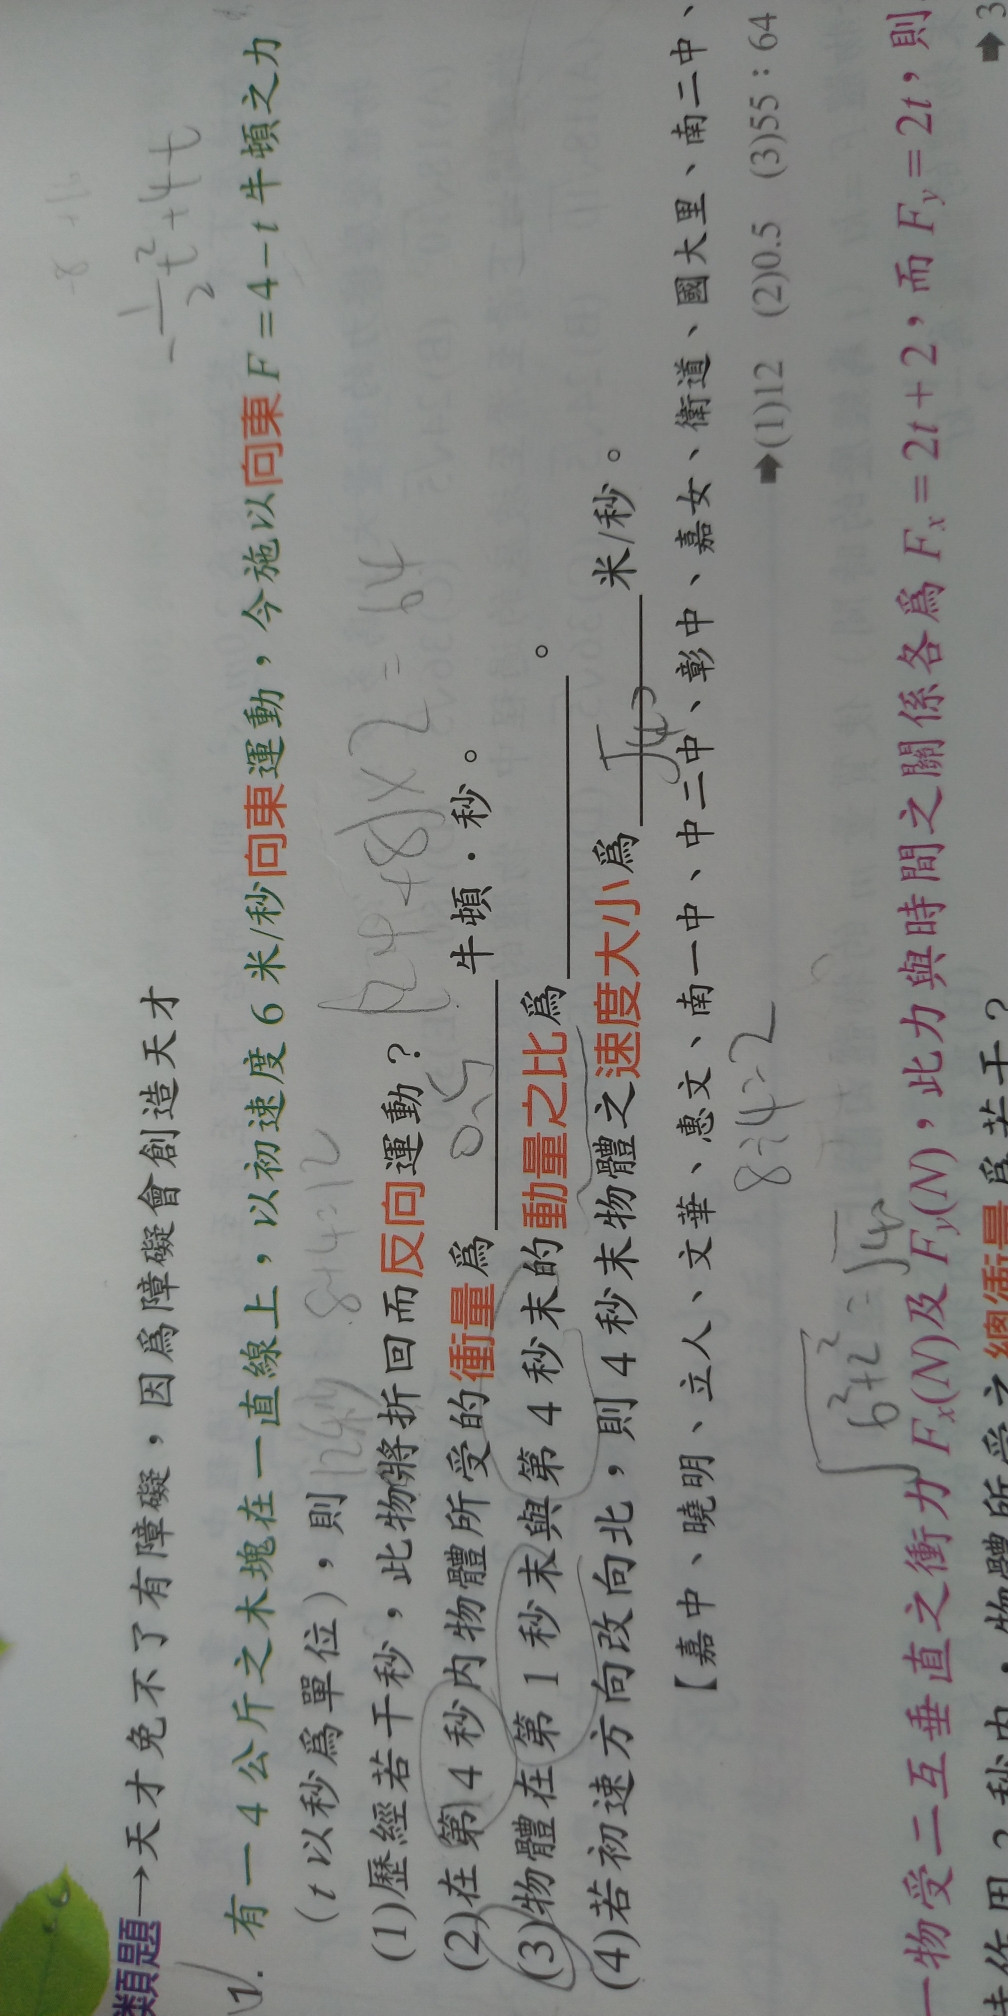 類題→天才免不了有障礙，因為障礙會創造天才
-1/2 t²+4t
1. 有一4公斤之木塊在一直線上，以初速度6米/秒向東運動，今施以向東F=4-t牛頓之力
(t以秒為單位)，則
8+4=12
(1)歷經若干秒，此物將折回而反向運動？
12秒
(24+8)×2=64
(2)在第4秒內物體所受的衝量為 0.5 牛頓·秒。
(3)物體在第1秒末與第4秒末的動量之比為 。
(4)若初速方向改向北，則4秒末物體之速度大小為 米/秒。
【嘉中、曉明、立人、文華、惠文、南一中、中二中、彰中、嘉女、衛道、國大里、南二中、
8÷4=2
➡(1)12 (2)0.5 (3)55：64
√6²+2²=√40
一物受二互垂直之衝力Fx(N)及Fy(N)，此力與時間之關係各為Fx=2t+2，而Fy=2t，則
作用2秒內，物體所受之總衝量為若干？
➡3